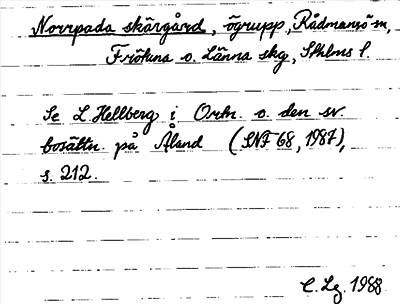 Norrpada skärgård, ögrupp, Rådmansö sn,
Frötuna o. Länna skg, Sthlms l.
Se L Hellberg i Ortn. o. den sv.
bosättn. på Åland (SNF 68, 1987),
s. 212.
C. Lg. 1988